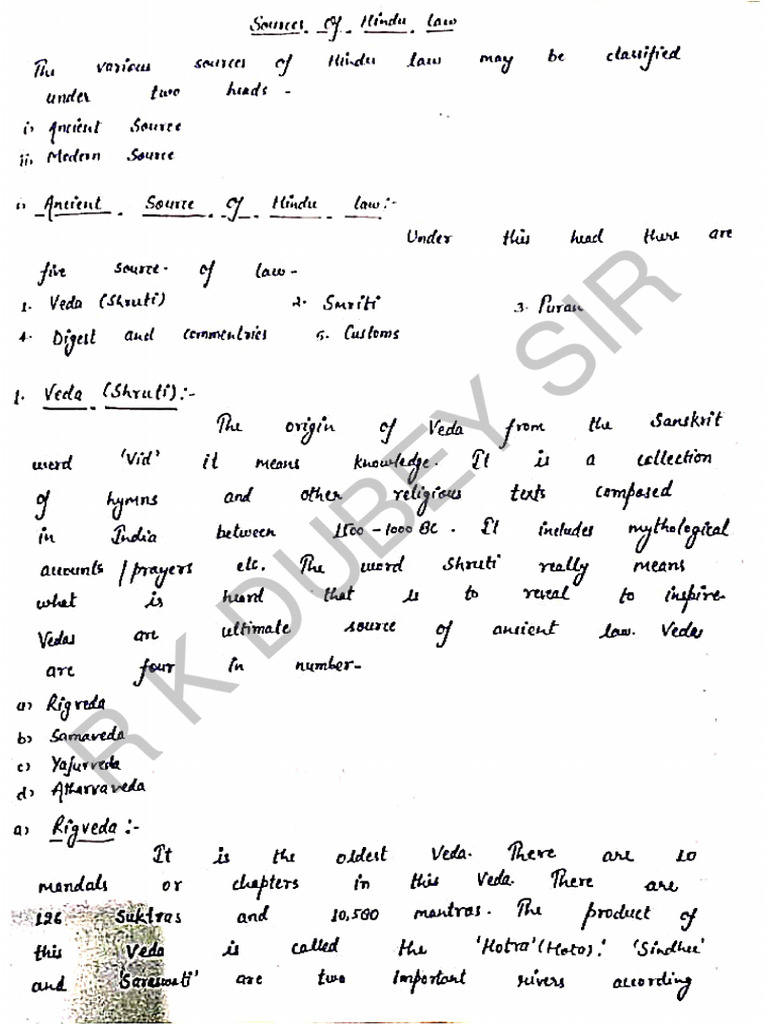 Sources of Hindu law
The various sources of Hindu law may be classified
under two heads -
i) Ancient Source
ii, Modern Source
i) Ancient Source of Hindu law:-
Under this head there are
five source of law -
1. Veda (Shruti) 2. Smriti 3. Puran
4. Digest and commentries 5. Customs
1. Veda (Shruti):-
The origin of Veda from the Sanskrit
word 'Vid' it means knowledge. It is a collection
of hymns and other religious texts composed
in India between 1500-1000 BC. It includes mythological
accounts / prayers etc. The word Shruti really means
what is heard that is to reveal to inspire.
Vedas are ultimate source of ansient law. Vedas
are four in number-
a) Rigveda
b) Samaveda
c) Yajurveda
d) Atharvaveda
a) Rigveda:-
It is the oldest Veda. There are 10
mandals or chapters in this Veda. There are
126 Suktras and 10,580 mantras. The product of
this Veda is called the 'Hotra' (Hoto). 'Sindhu'
and 'Saraswati' are two important rivers according
R K DUBEY SIR